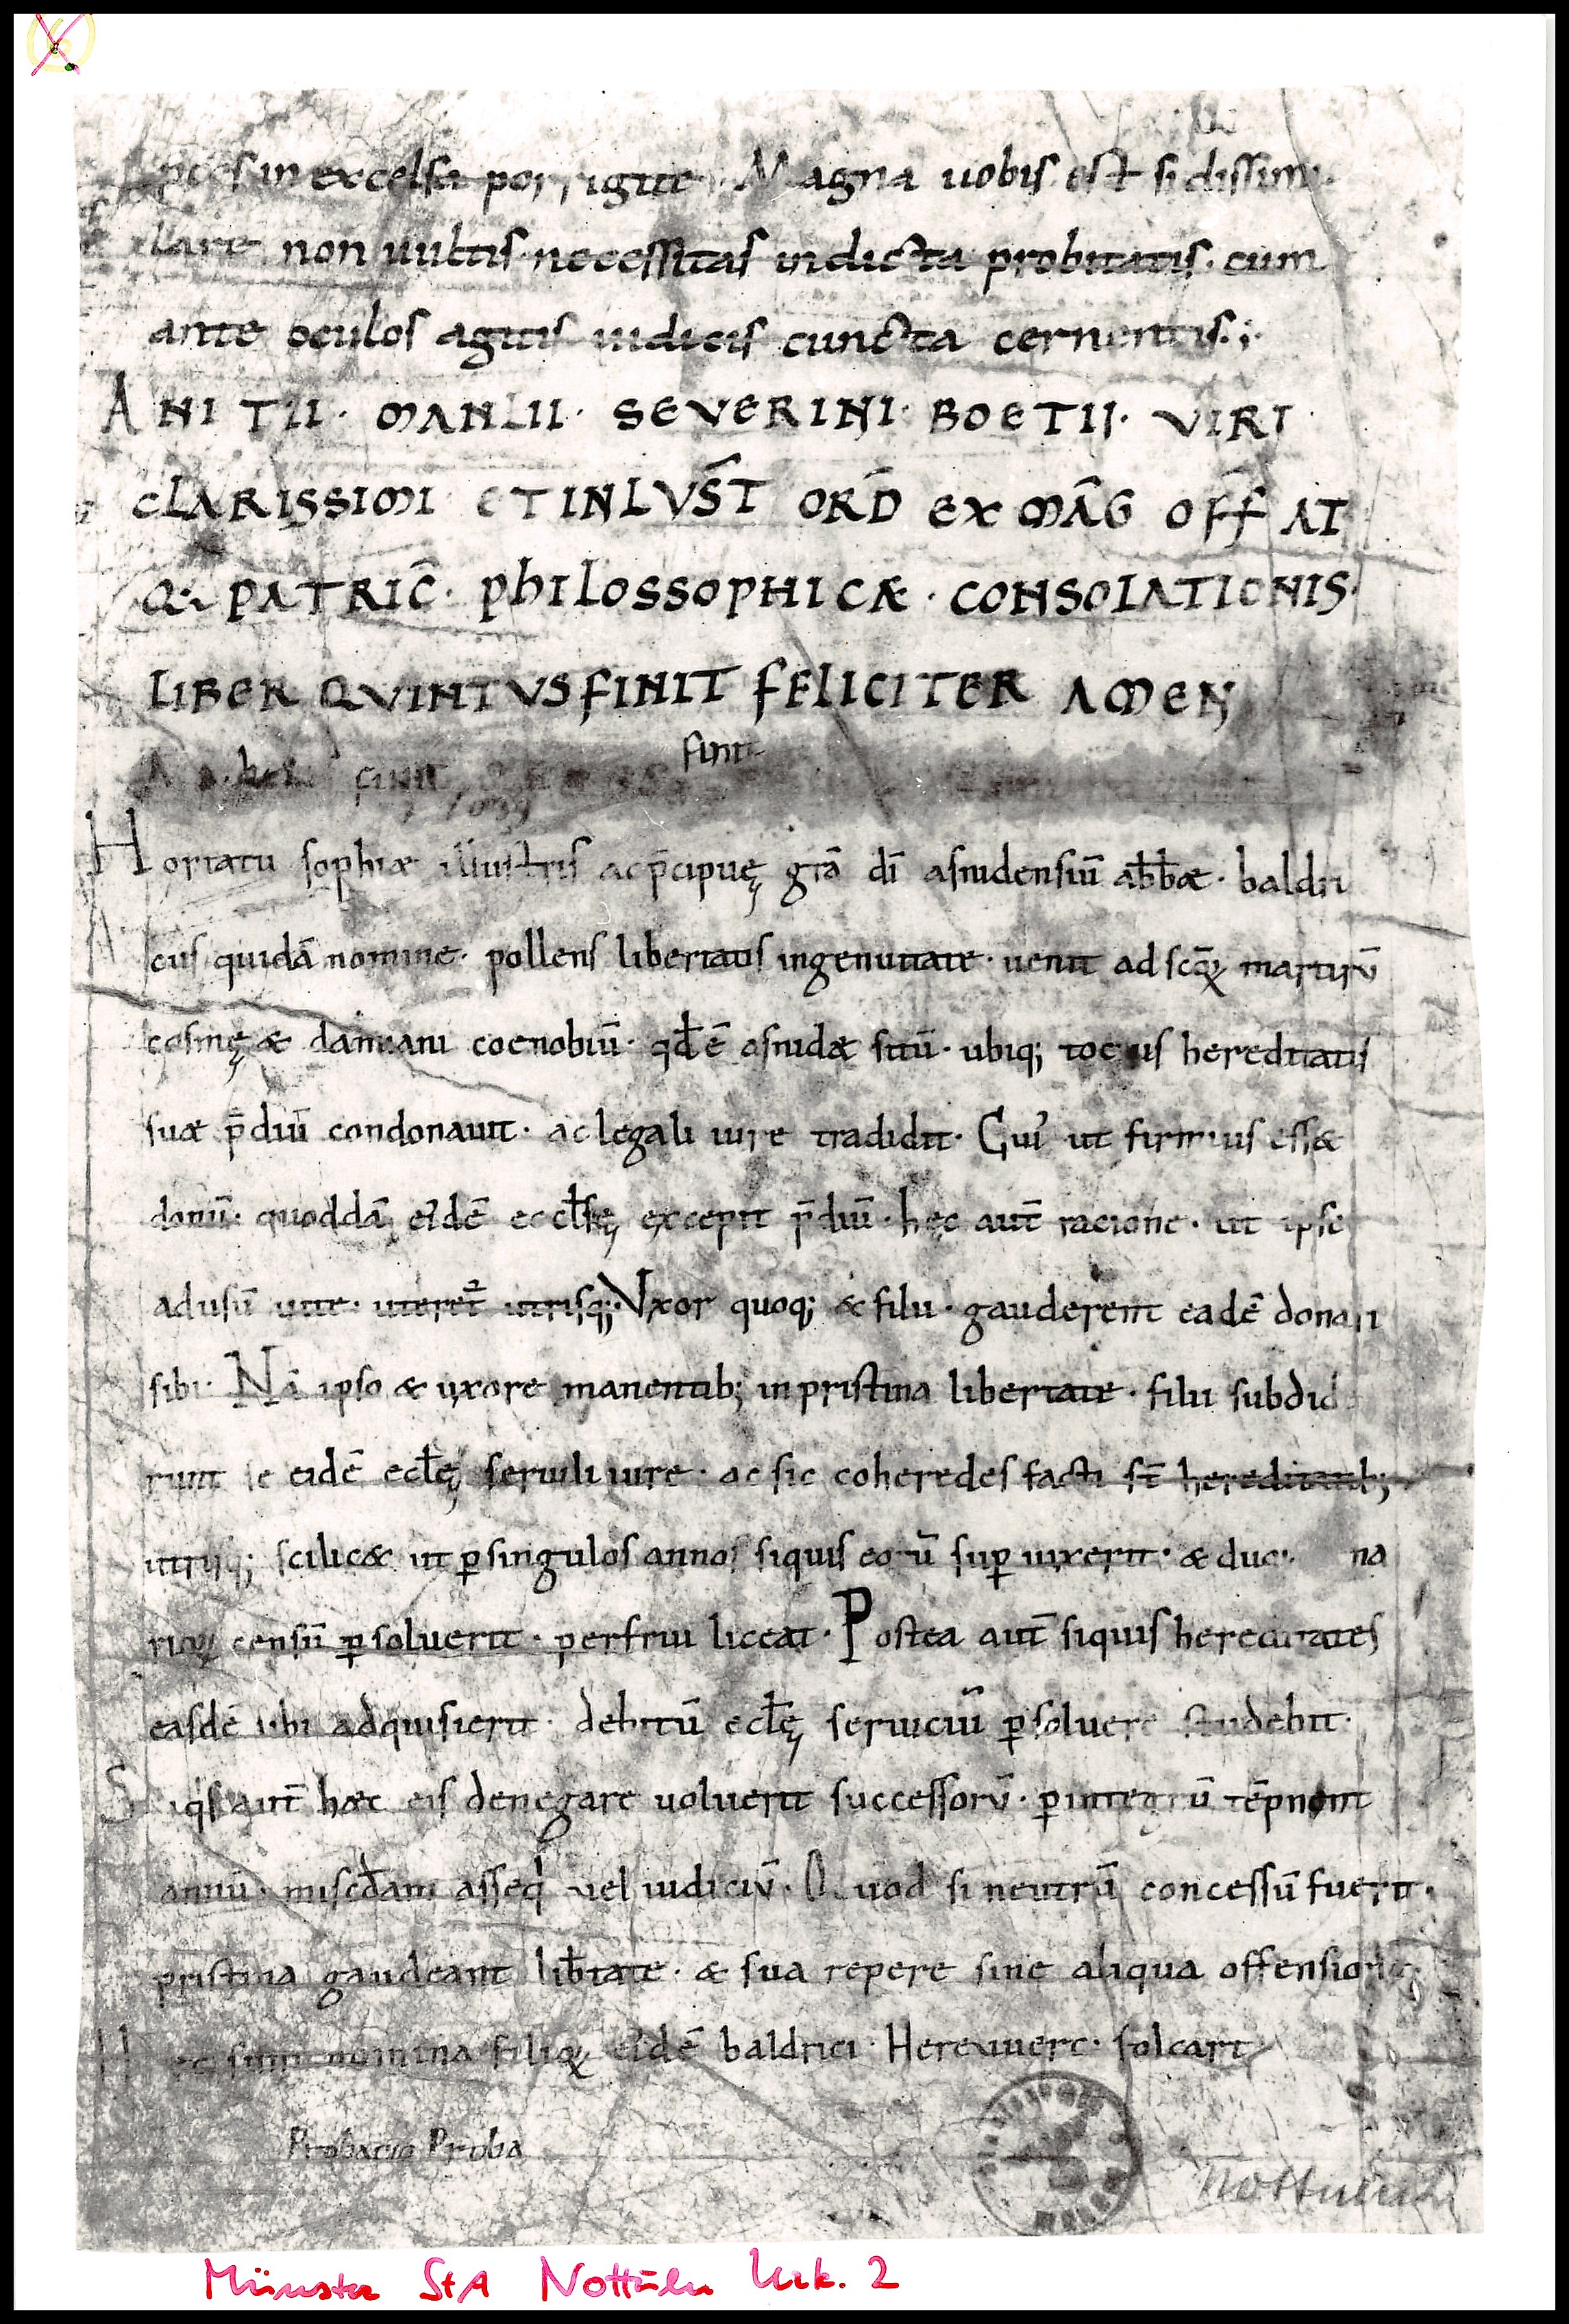 pces in excelsa porrigite. Magna uobis est si dissimu
lare non uultis. necessitas indicta probitatis. cum
ante oculos agitis iudicis cuncta cernentis:;
ANITII. MANLII. SEVERINI. BOETII. VIRI
CLARISSIMI ET INLVST̄ ORD̄ EX MĀG OFF̄ AT
Q; PATRIC̄. PHILOSSOPHICÆ. CONSOLATIONIS.
LIBER QVINTVS FINIT FELICITER AMEN
finit
FINIT
Hortatu sophiæ illustris ac p̄cipuę grā dī asnidensiū ab̄bæ. baldri
cus quidā nomine. pollens libertatis ingenuitate. uenit ad scōꝝ martirū
cosmę & damiani coenobiū. qđ ē asnidæ sitū. ubiq; tocius hereditatis
suæ p̄diū condonauit. ac legali iure tradidit. Cui' ut firmius ess&
donū. quoddā eidē eccłsię excepit p̄diū. hęc aut̄ racione. ut ipse
ad usū uite. uteret̄ utrisq;. Vxor quoq; & filii. gauderent eadē donari
sibi. Nā ipso & uxore manentib; in pristina libertate. filii subdide
runt se eidē ecłę seruili iure. ac sic coheredes facti st̄ hereditatib;
utrisq; scilic& ut ꝑ singulos annos siquis eorū suꝑ uixerit. & duo. na
rioꝝ censū ꝑsoluerit. perfrui liceat. Postea aut̄ siquis hereditates
easdē ubi adquisierit. debitū ecłę seruiciū ꝑsoluere studebit.
Siq's aut̄ hæc eis denegare uoluerit successorū. ꝑ integrū tēpnent
annū. miscđam asseq' uel iudiciū. Quod si neutrū concessū fuerit.
pristina gaudeant lib̄tate. & sua repere sine aliqua offensione.
Hęc sunt nomina filioꝝ eidē baldrici. Hereuuerc. folcart
Probacio Proba
Nottuln
Münster StA Nottuln Urk. 2